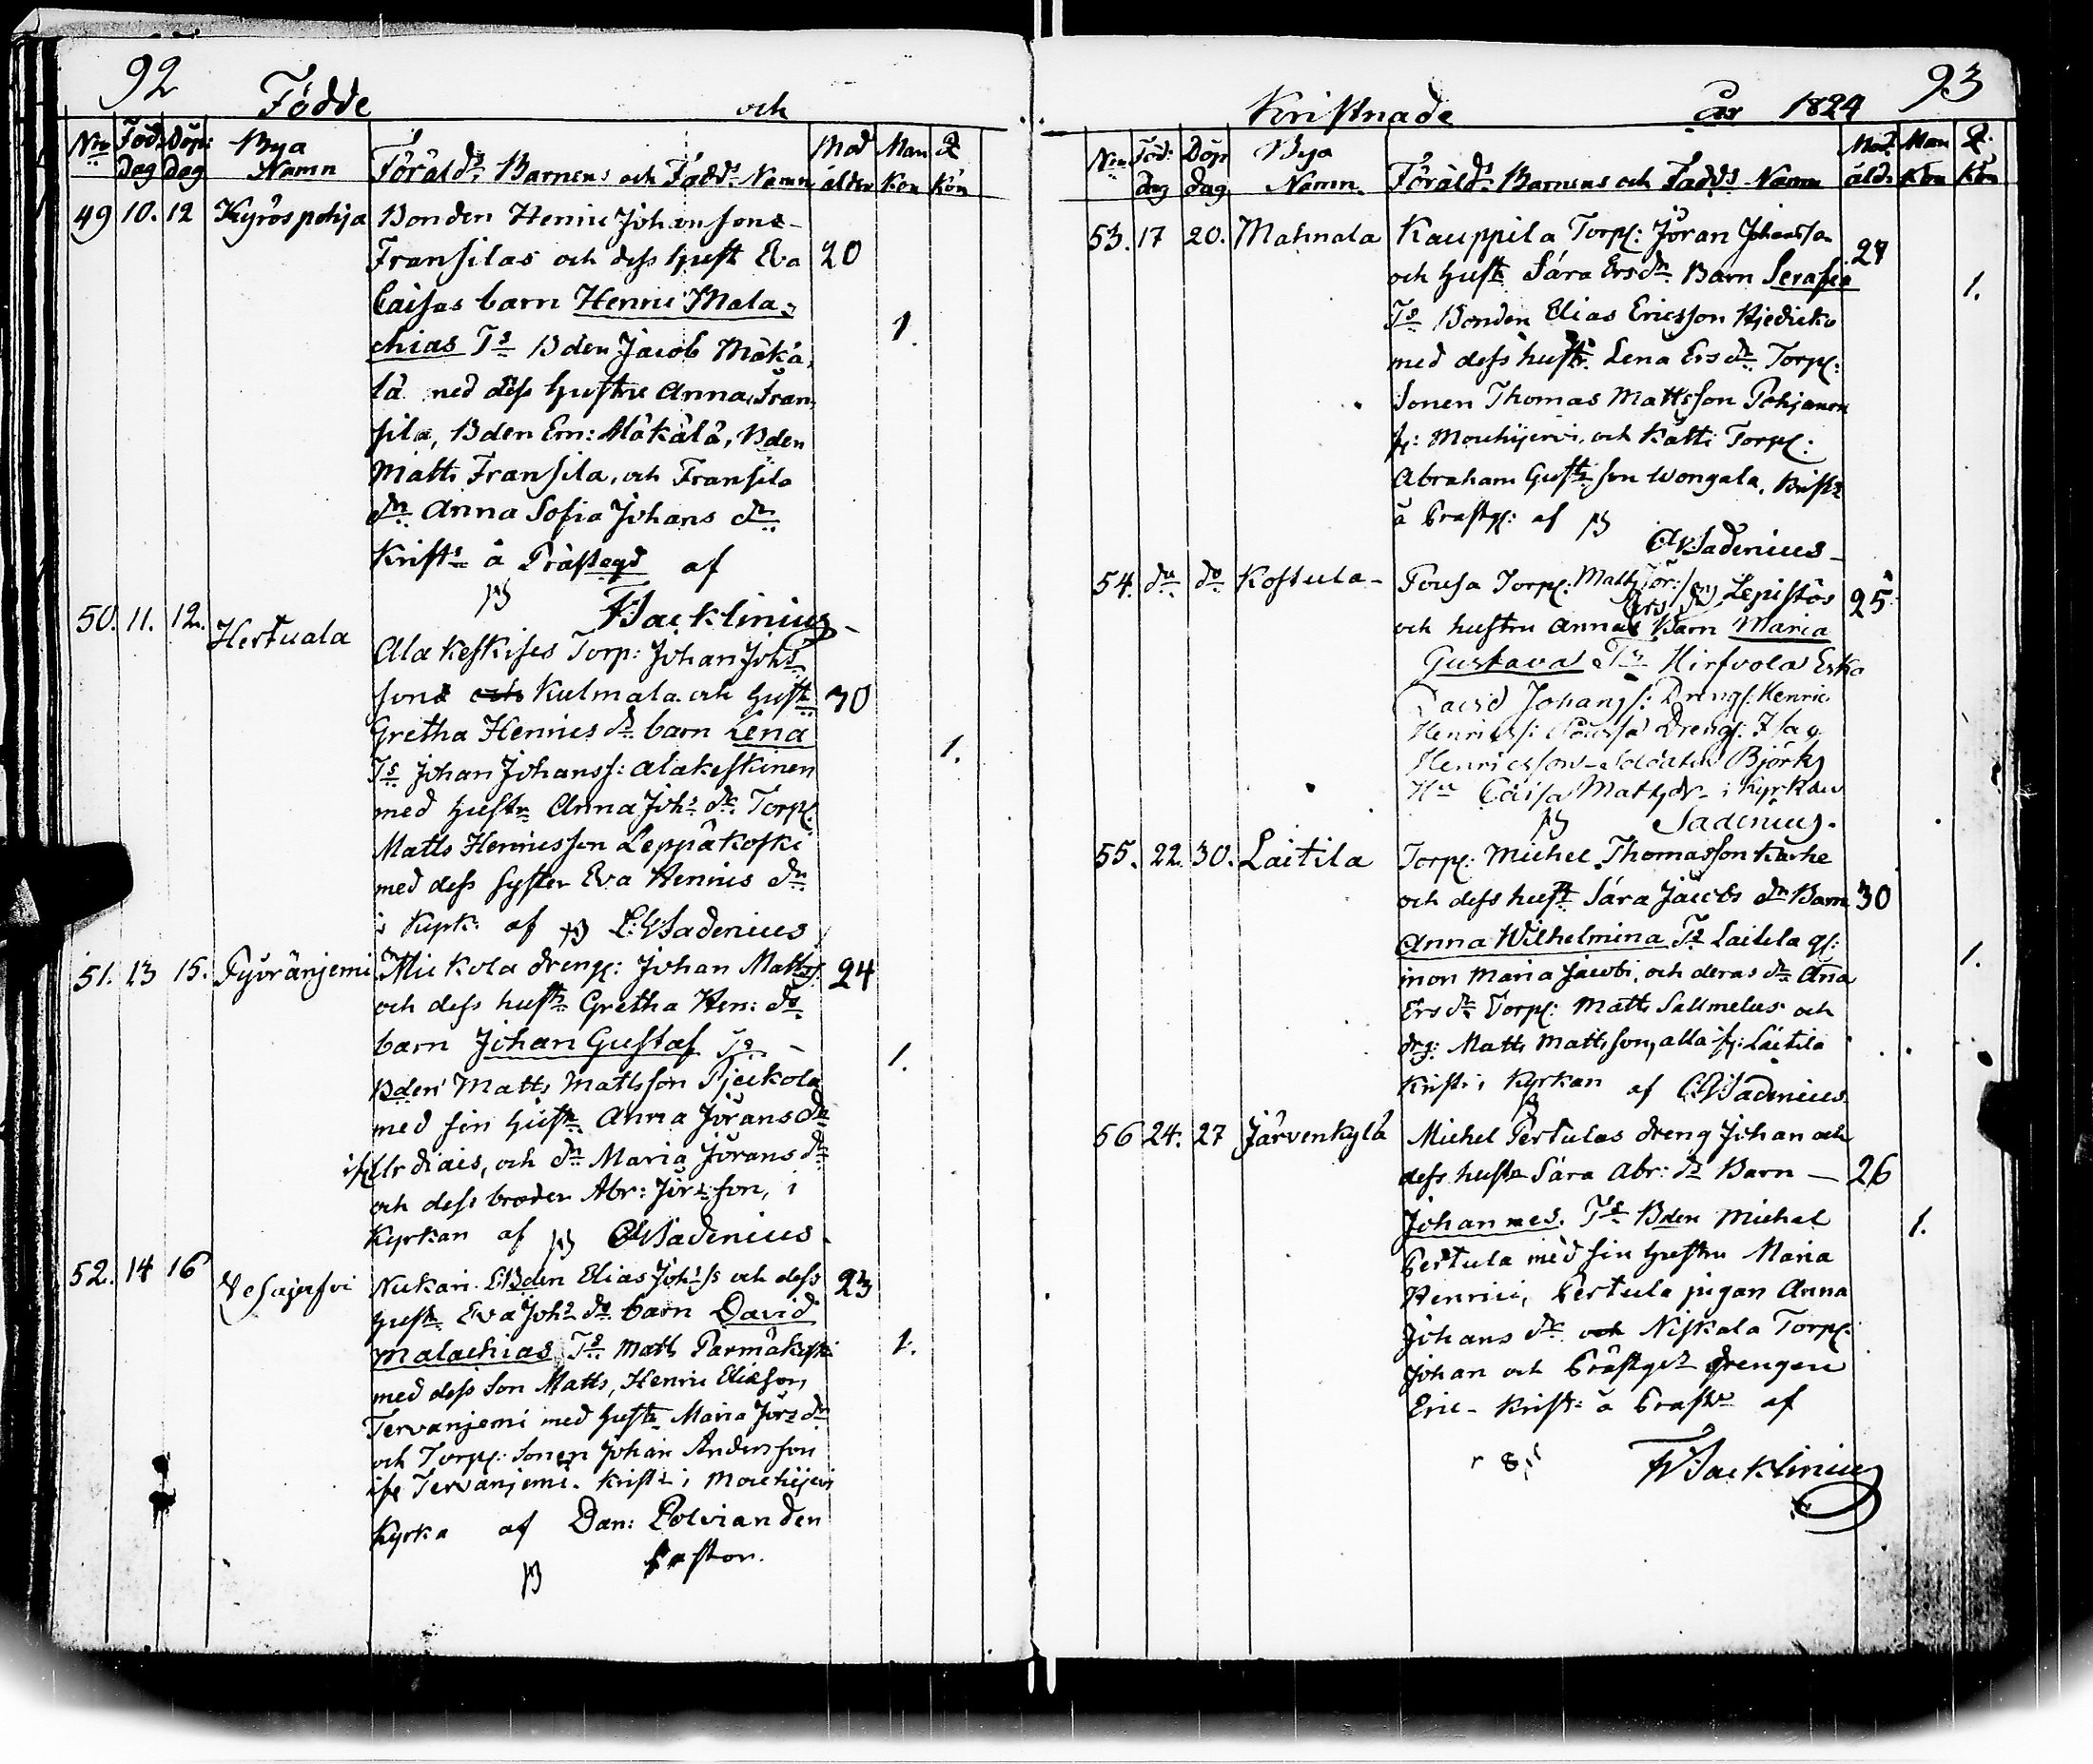 92
Födde och
Nro Föd: dag Döp: dag Bya Namn Föräld:s Barnens och Fadd:s Namn Mod ålder Man Kön Q Kön
49 10. 12 Kyröspohja Bonden Henric Johansons
Fransilas och dess hust Eva 20
Caisas barn Henric Mala-
chias Ts Bden Jacob Mäkä- 1.
lä med dess hustru Anna, Fran-
sila, Bden Em: Mäkälä, Bden
Matts Fransila, och Fransila
dn Anna Sofia Johans dn
Krists å Prästegd af
FWacklinius
50. 11. 12. Hertuala
Alakeskises Torp: Johan Johs
sons och Kulmala och hust 30
Gretha Henrics dr barn Lena
Ts Johan Johanss: Alakeskinen 1.
med hustr Anna Johs dr Torp:
Matts Henricsson Leppäkoski
med dess syster Eva Henrics dr
i Kyrk: af Sadenius
51. 13 15. Pyöränjemi Mickola dreng: Johan Matts: 24
och dess hustr Gretha Hen: dr
barn Johan Gustaf Ts – 1.
Bden Matts Mattsson Pjeikola
med sin hustr Anna Jörans dr
och dr Maria Jörans dr
och dess broder Abr: Jör:son, i
Kyrkan af Sadenius
52. 14 16 Vesajersvi Nukari Bden Elias Johs s och dess 23
hustr Eva Johs dr barn David
Malachias Ts Matts Parmäkoski 1.
med dess son Matts, Henric Elieson
Tervanjemi med hustr Maria Jörs dr
och Torp: sonen Johan Andersson
Tervanjemi. Krists i Mouhijervi
Kyrka af Dan: Polviander
Pastor.
93
Kristnade År 1824
Nro Föd: dag Döp dag Bya Namn. Föräld:s Barnens och Fadd:s Namn Mod: åld: Man Kön Q. Kön
53. 17 20. Mahnala Kauppila Torp: Jöran Johansson 27
och hustr Sara Ers dr Barn Serafia 1.
Ts Bonden Elias Ericsson Hjedicko
med dess hustr: Lena Ers dr Torp:
sonen Thomas Mattsson Pohjanen
fr: Mouhijervi, och Kätti Torp:
Abraham Gust:son Wongala, Krists
å Prästg: af
Sadenius
54. do do Kostula – Pousa Torp: Matts Jör:s Lepistös 25
och hustru Annas Ers dr Barn Maria
Gustava Ts Hirsvola Esko
David Johans: Drengs: Henric
Henrics: Pousa Drengs: Isac
Henricsson Soldaten Björks
Hu Caisa Matts dr i Kyrkan
Sadenius.
55. 22. 30. Laitila Torp: Michel Thomasson Karhe
och dess hustr Sara Jacobs dr Barn 30
Anna Wilhelmina Ts Laitila
Maria Jacobi, och deras dr Ana 1.
Ers dr Torp: Matts Sallmelus och
drg: Matts Mattsson, alla fr: Laitila
Krist: i Kyrkan af Sadenius
56 24. 27 Järvenkylä Michel Pertulas dreng Johan och
dess hustr Sara Abr: dr Barn — 26
Johannes. Ts Bden Michel 1.
Pertula med sin hustru Maria
Henrici, Pertula pigan Anna
Johans dr och Niskala Torp:
Johan och Prästgds drengen
Eric – Krist: å Prästg af
FWacklinius